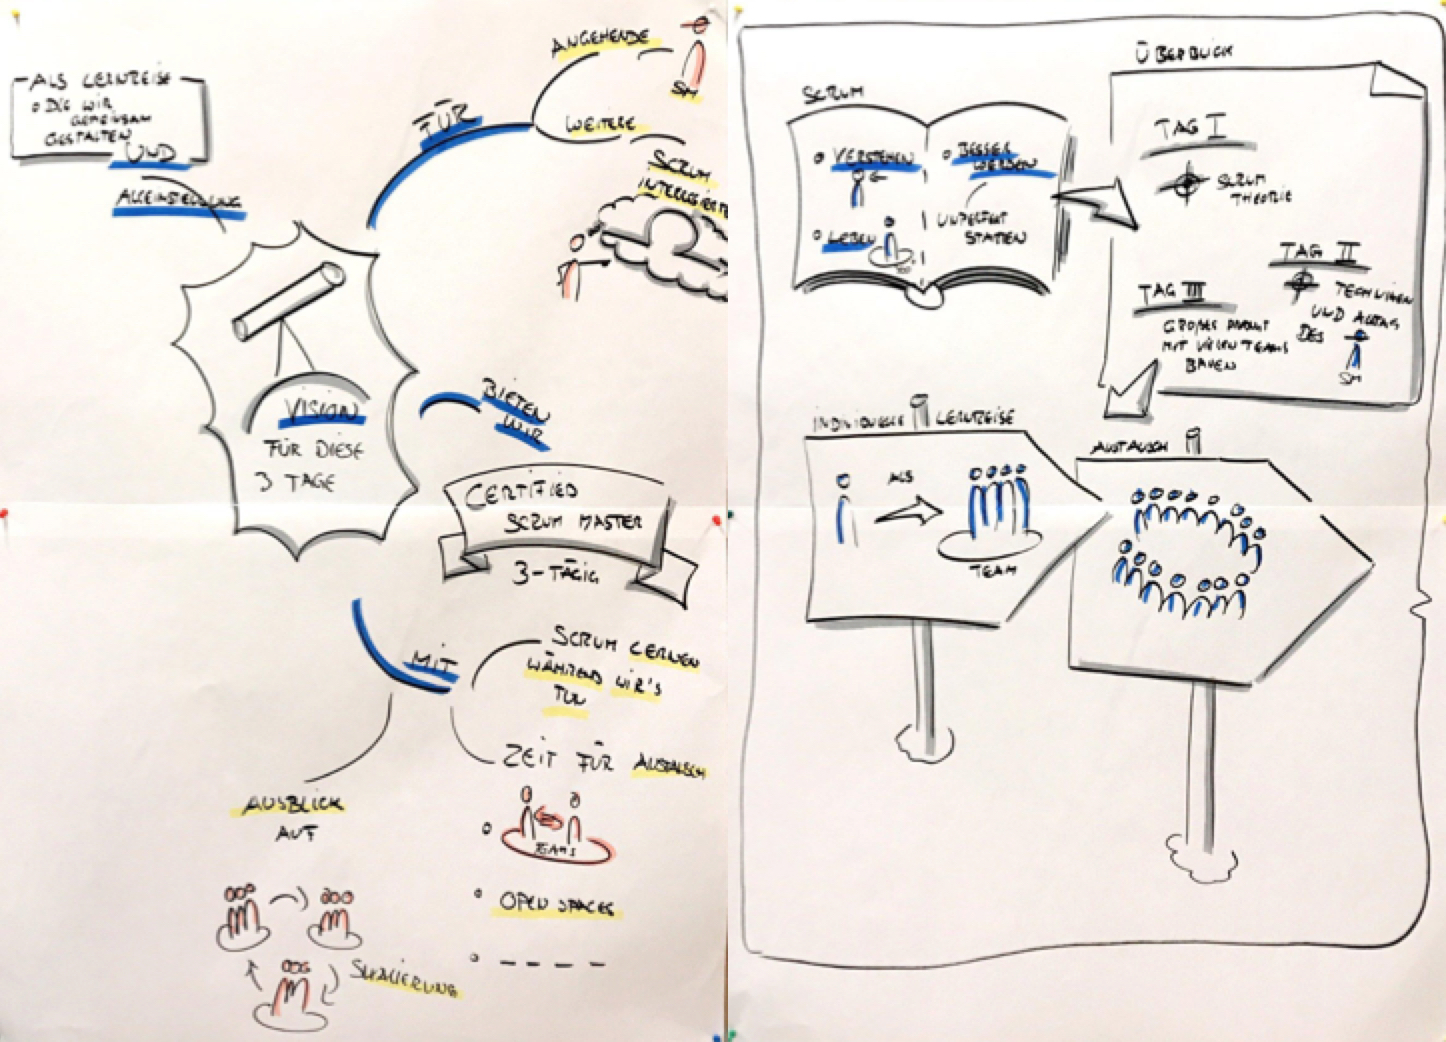 ALS LERNREISE
DIE WIR
GEMEINSAM
GESTALTEN
UND
FÜR
ANGEHENDE
SM
WEITERE
SCRUM
VISION
FÜR DIESE
3 TAGE
BIETEN
WIR
CERTIFIED
SCRUM MASTER
3-TÄGIG
MIT
SCRUM LERNEN
WÄHREND WIR'S
TUN
ZEIT FÜR AUSTAUSCH
TEAMS
OPEN SPACES
AUSBLICK
AUF
SKALIERUNG
SCRUM
VERSTEHEN
LEBEN
BESSER
WERDEN
STARTEN
ÜBERBLICK
TAG I
SCRUM
THEORIE
TAG II
TECHNIKEN
UND ALLTAG
DES
SM
TAG III
GROßES PRODUKT
MIT VIELEN TEAMS
BAUEN
INDIVIDUELLE LERNREISE
ALS
TEAM
AUSTAUSCH